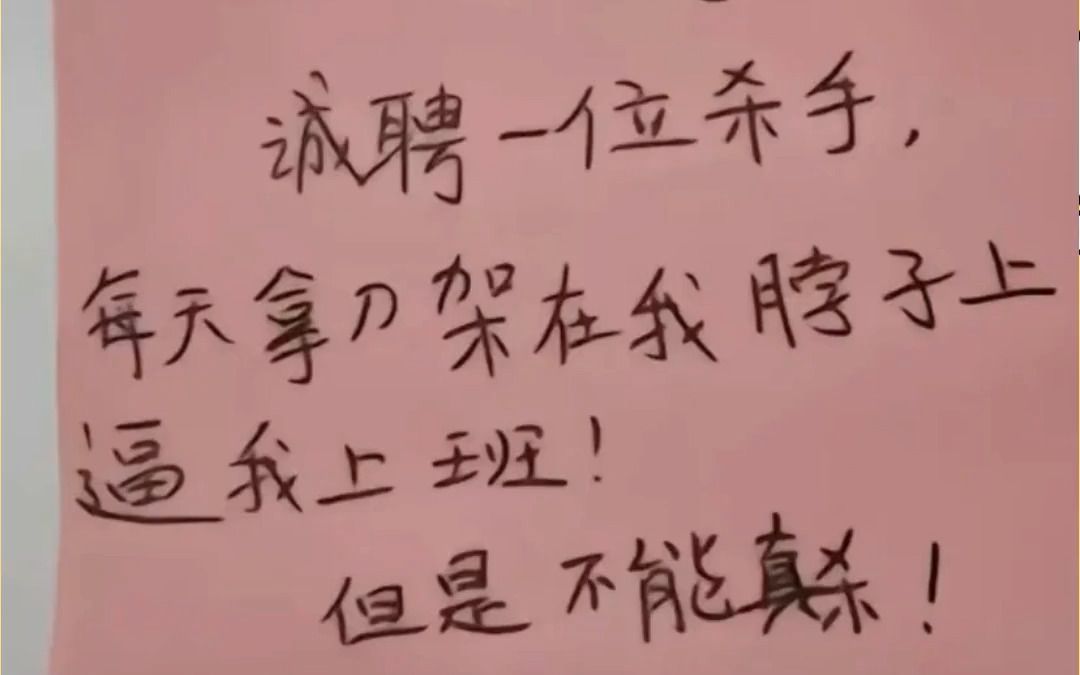 诚聘一位杀手，
每天拿刀架在我脖子上
逼我上班！
但是不能真杀！